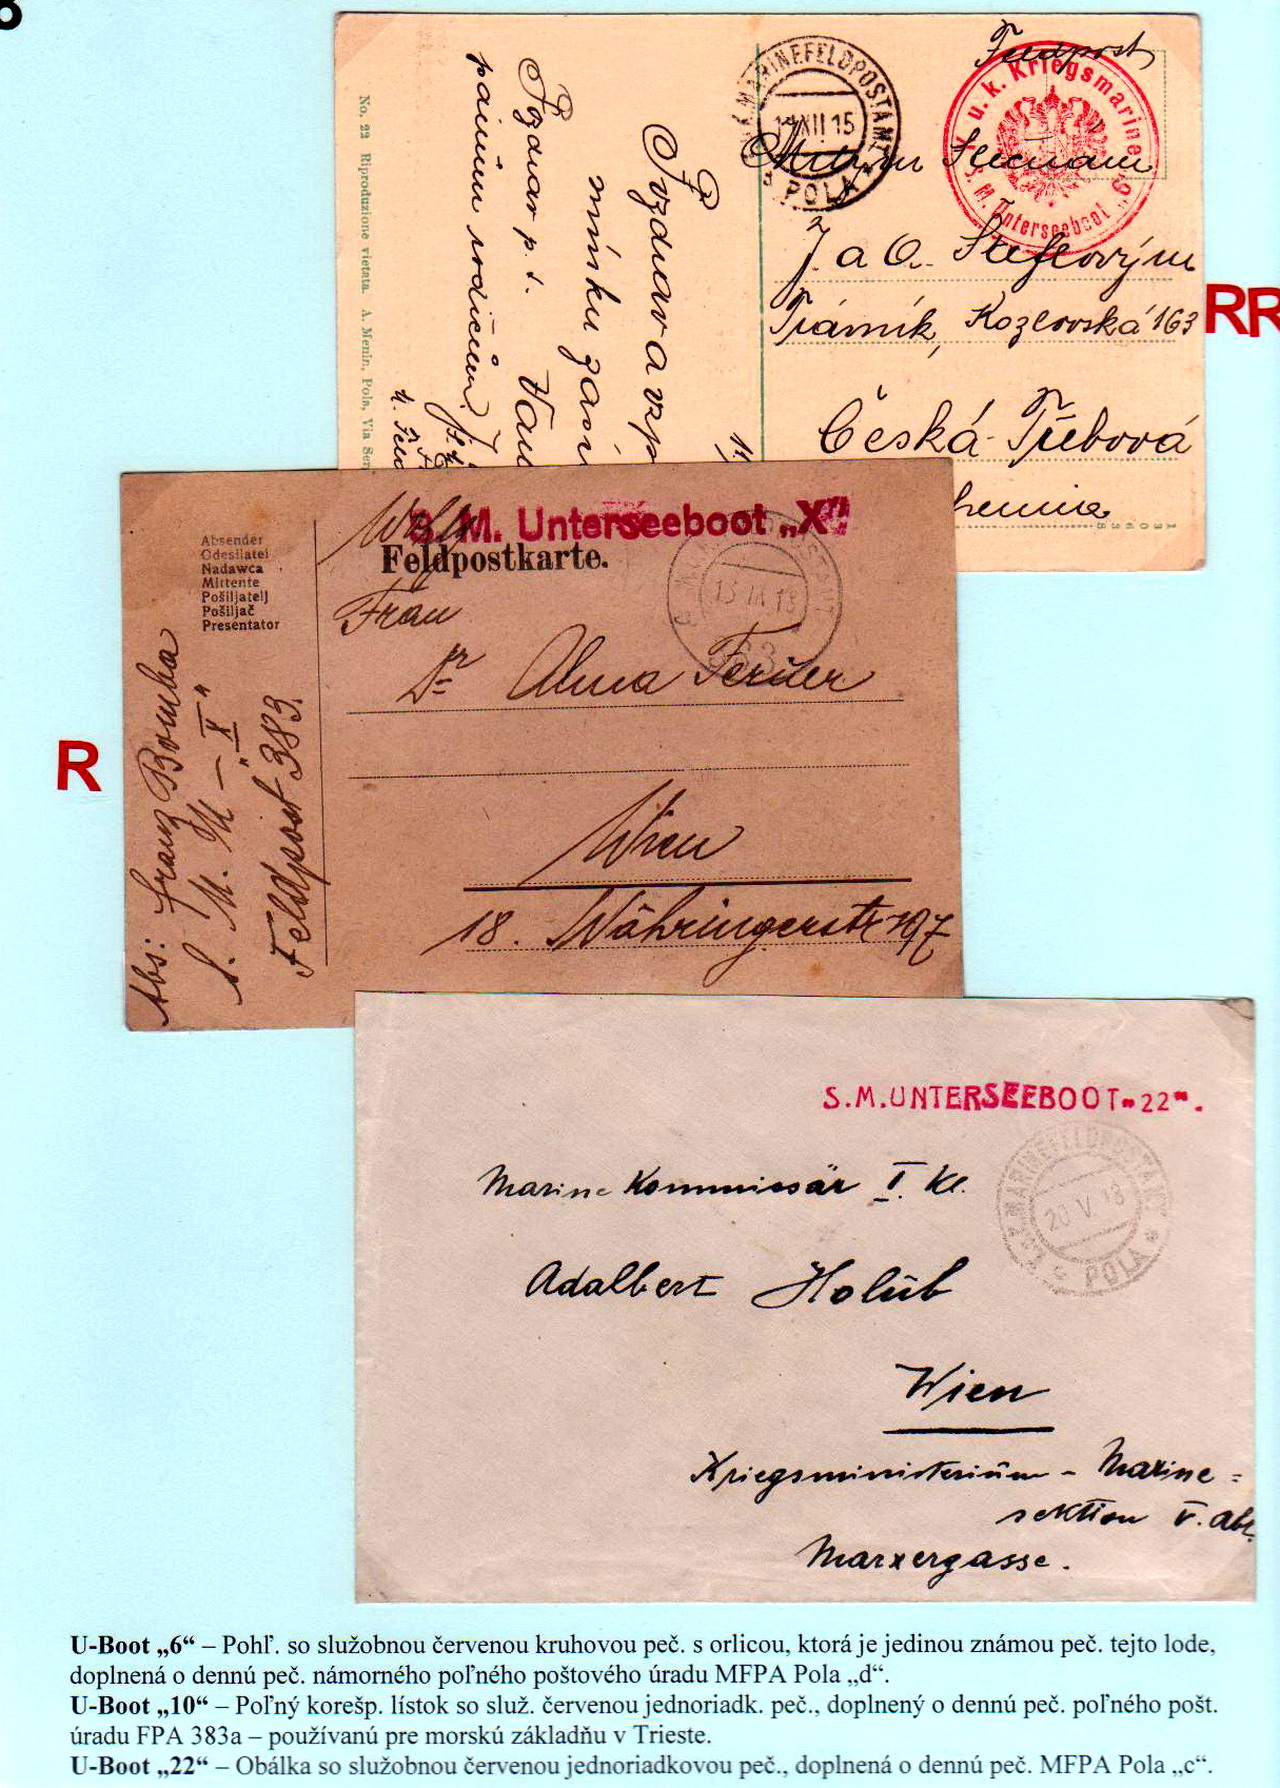 Feldpost
K. u. k. Kriegsmarine
S. M. Unterseeboot „6"
MARINEFELDPOSTAMT
XII 15
POLA
J. a A. Šteflovým
Trávník, Kozlovská 163
Česká Třebová
No. 22 Riproduzione vietata. A. Menin, Pola, Via Ser
Pozdrav p. t.
RR
S. M. Unterseeboot „X"
Feldpostkarte.
Absender
Odesílatel
Nadawca
Mittente
Pošiljatelj
Pošiljač
Presentator
Frau
Dr Alma
Wien
18. Währingerstr 197
Abs: Franz Bomba
S. M. U – „X"
Feldpost 383
R
S.M.UNTERSEEBOOT „22".
K.u.K. MARINEFELDPOSTAMT
20 V. 18
c POLA
Marine Kommissär I. Kl.
Adalbert Holub
Wien
Kriegsministerium - Marine =
sektion V. Abt.
Marxergasse.
U-Boot „6“ – Pohľ. so služobnou červenou kruhovou peč. s orlicou, ktorá je jedinou známou peč. tejto lode,
doplnená o dennú peč. námorného poľného poštového úradu MFPA Pola „d“.
U-Boot „10“ – Poľný korešp. lístok so služ. červenou jednoriadk. peč., doplnený o dennú peč. poľného pošt.
úradu FPA 383a – používanú pre morskú základňu v Trieste.
U-Boot „22“ – Obálka so služobnou červenou jednoriadkovou peč., doplnená o dennú peč. MFPA Pola „c“.